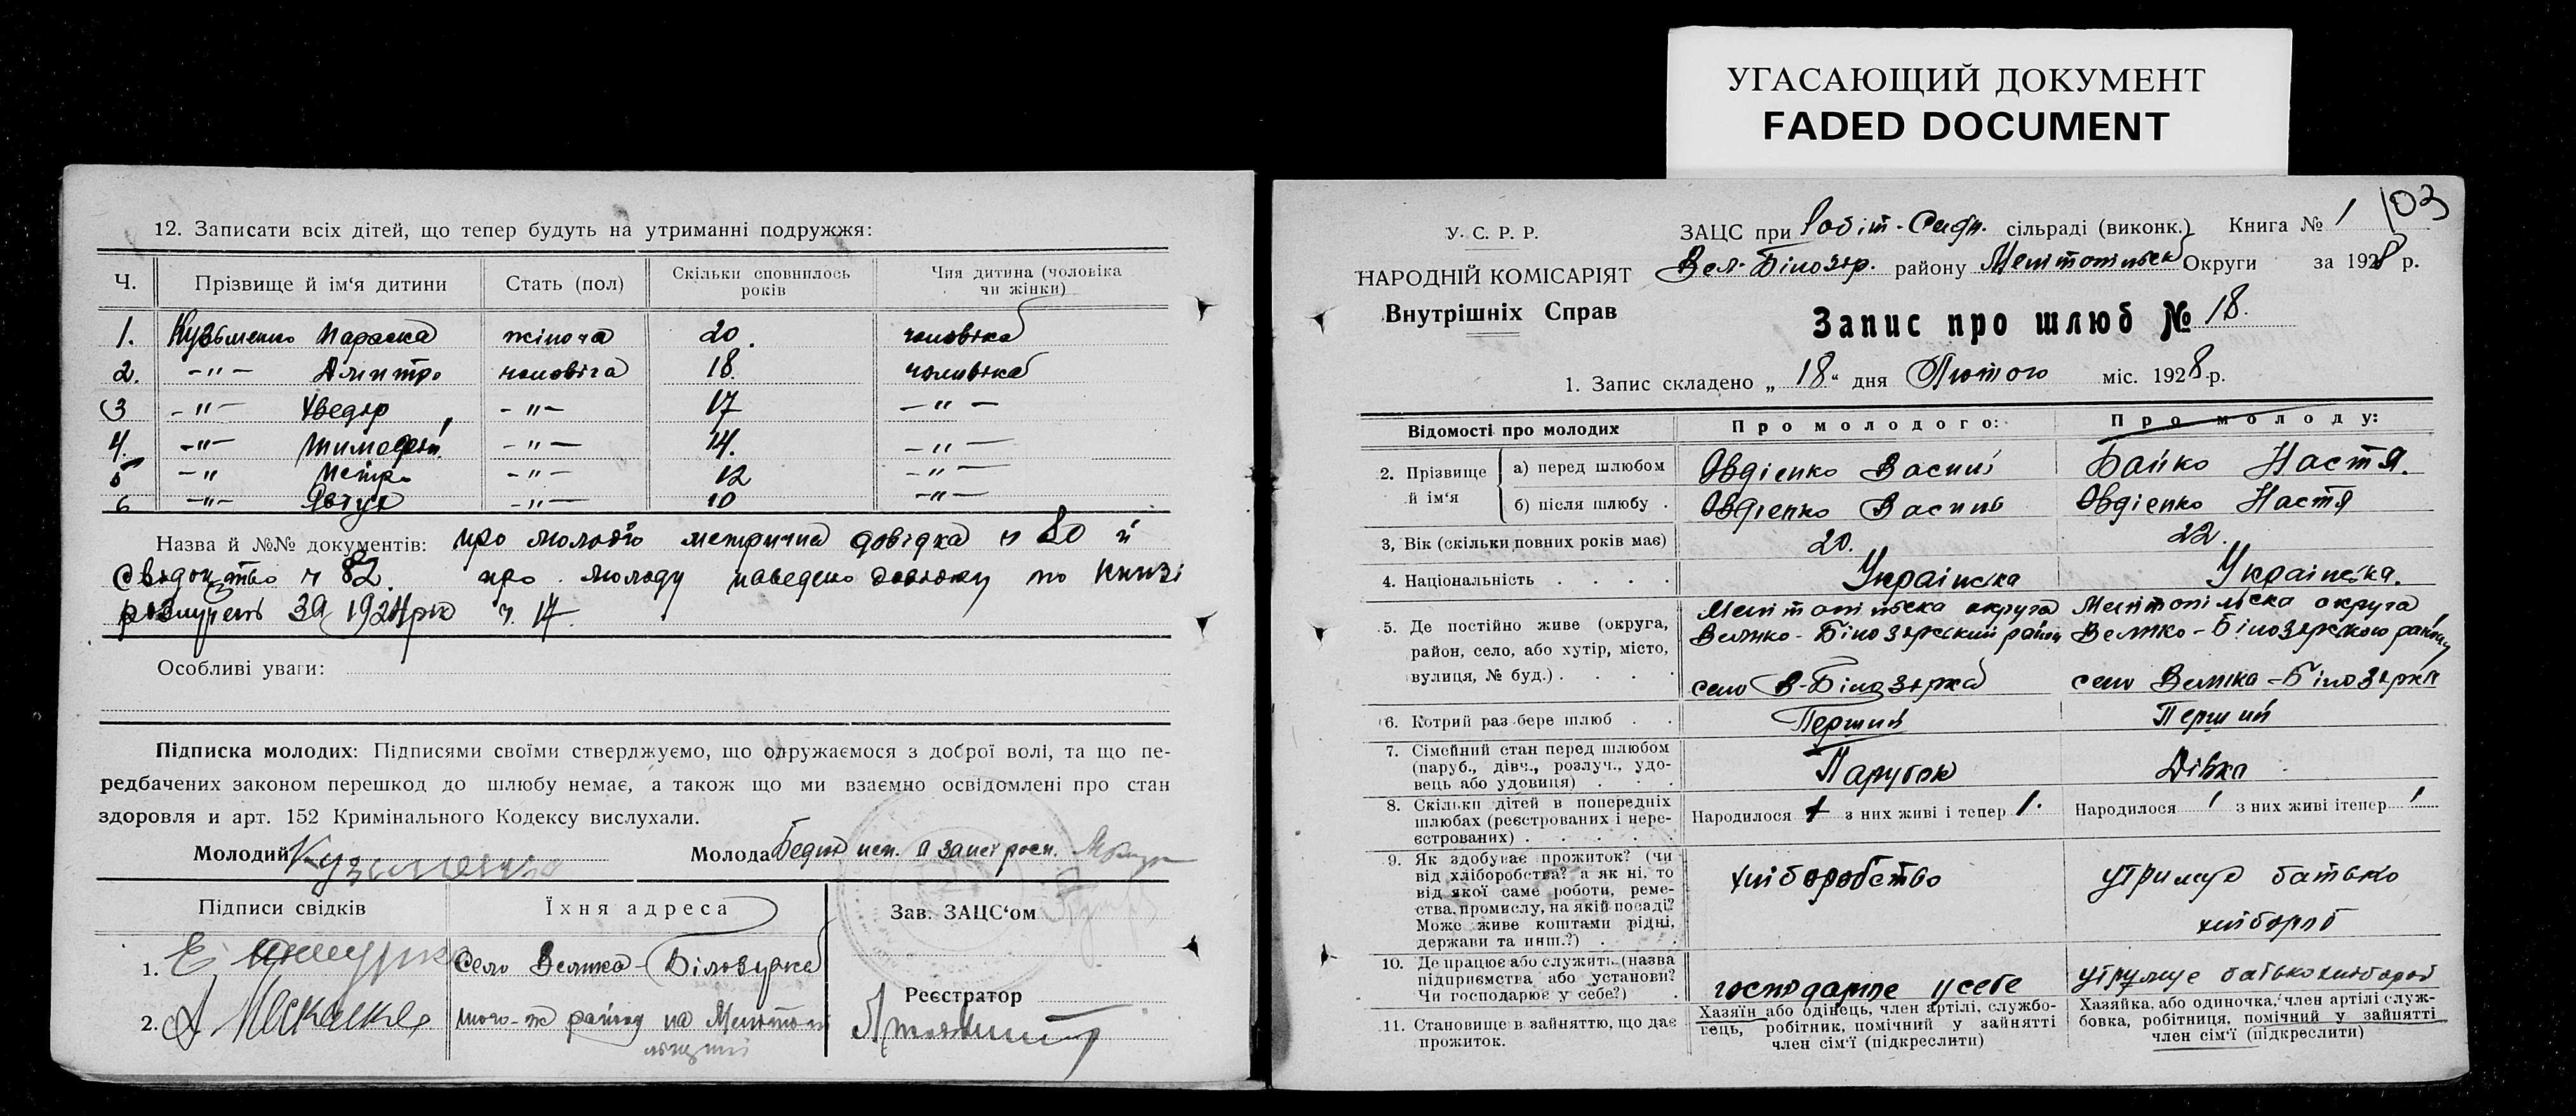 УГАСАЮЩИЙ ДОКУМЕНТ
FADED DOCUMENT
12. Записати всіх дітей, що тепер будуть на утриманні подружжя:
Ч. Прізвище й ім'я дитини Стать (пол) Скільки сповнилось років Чия дитина (чоловіка чи жінки)
1. Кузьменко Параска жіноча 20. чоловіка
2. -"- Дмитро чоловіча 18. чоловіка
3 -"- Хведір -"- 17 -"-
4. -"- Тимофій -"- 14. -"-
5 -" Петро -"- 12 -"-
6 -"- Явтух -"- 10 -"-
Назва й №№ документів: про молодого метрична довідка ч 80 й
свідоцтво ч 82. про молоду наведено довідку по книзі
розлучень за 1924 рік ч. 17.
Особливі уваги:
Підписка молодих: Підписями своїми стверджуємо, що одружаємося з доброї волі, та що пе-
редбачених законом перешкод до шлюбу немає, а також що ми взаємно освідомлені про стан
здоровля и арт. 152 Кримінального Кодексу вислухали.
Молодий Кузьменко Молода
Підписи свідків Їхня адреса Зав. ЗАЦС'ом
1. Село Велика-Білозірка
2. того-ж району на Мелітопільщині
Реєстратор
У. С. Р. Р.
НАРОДНІЙ КОМІСАРІЯТ
Внутрішніх Справ
103
ЗАЦС при сільраді (виконк.) Книга № 1
Вел. Білозір. району Мелітопільськ Округи за 1928 р.
Запис про шлюб № 18.
1. Запис складено „ 18 " дня Лютого міс. 1928 р.
Відомості про молодих Про молодого: Про молоду:
2. Прізвище й ім'я а) перед шлюбом Овдієнко Василь Бойко Настя.
б) після шлюбу . Овдієнко Василь Овдієнко Настя
3, Вік (скільки повних років має) 20. 22.
4. Національність . . . . Українська Українська.
5. Де постійно живе (округа, район, село, або хутір, місто, вулиця, № буд.) . . . . Мелітопільска округа Велико-Білозірський район село В-Білозірка Мелітопільска округа Велико-Білозірського району село Велика-Білозірка
6. Котрий раз бере шлюб . . Перший Перший
7. Сімейний стан перед шлюбом (паруб., дівч., розлуч., удовець або удовиця) . . . Парубок Дівка
8. Скільки дітей в попередніх шлюбах (реєстрованих і нереєстрованих) . . . . Народилося з них живі і тепер Народилося з них живі ітепер
9. Як здобуває прожиток? (чи від хліборобства? а як ні, то від якої саме роботи, ремества, промислу, на якій посаді? Може живе коштами рідні, держави та инш.?) . хліборобство утримує батько хлібороб
10. Де працює або служить (назва підприємства або установи? Чи господарює у себе?) . господарює у себе утримує батько хлібороб
11. Становище в зайняттю, що дає прожиток. Хазяїн або одінець, член артілі, службовець, робітник, помічний у зайнятті член сім'ї (підкреслити) Хазяйка, або одиночка, член артілі службовка, робітниця, помічний у зайнятті член сім'ї (підкреслити)